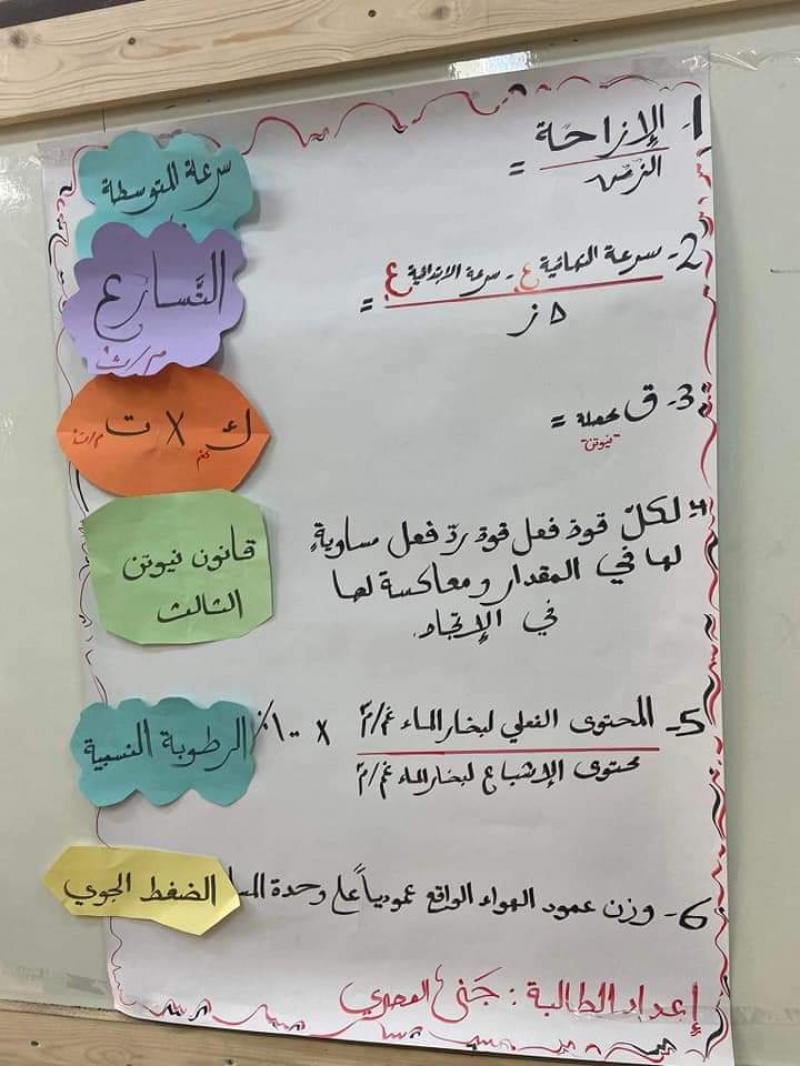 1- الإزاحة
الزمن =
سرعة المتوسطة
2- سرعة النهائية ع - سرعة الابتدائية ع
Δ ز =
التَّسارع
م/ث²
3- ق محصلة =
"نيوتن"
ك × ت
كغم م/ث²
4- لكلّ قوة فعل قوة ردّ فعل مساويةٍ
لها في المقدار ومعاكسة لها
في الإتجاه.
قانون نيوتن
الثالث
5- المحتوى الفعلي لبخار الماء غم/م³
محتوى الإشباع لبخار الماء غم/م³
× ١٠٠٪
الرطوبة النسبية
6- وزن عمود الهواء الواقع عمودياً على وحدة
الضغط الجوي
إعداد الطالبة : جَنى